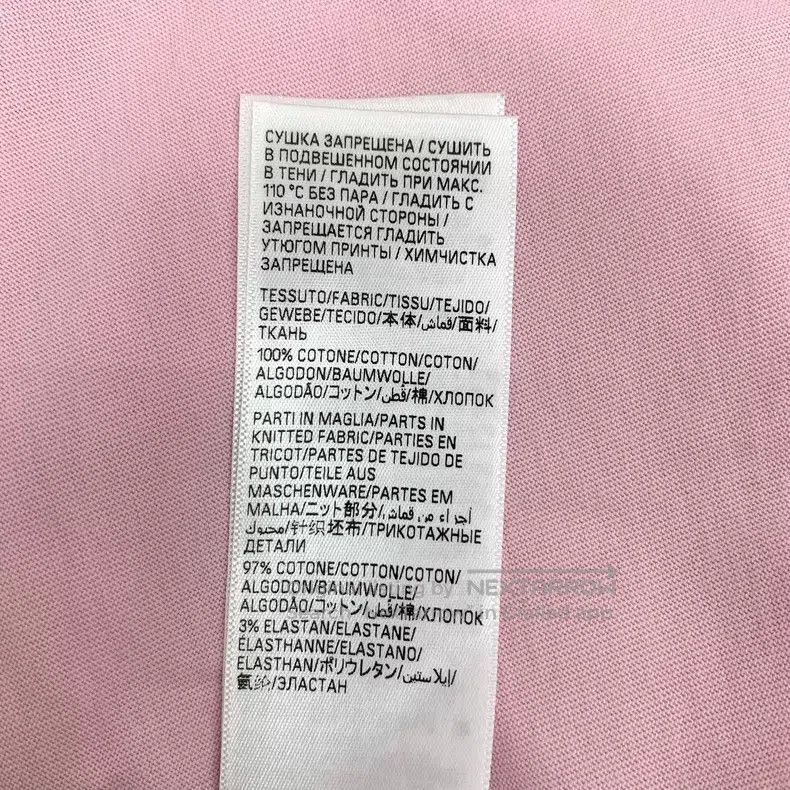 СУШКА ЗАПРЕЩЕНА / СУШИТЬ
В ПОДВЕШЕННОМ СОСТОЯНИИ
В ТЕНИ / ГЛАДИТЬ ПРИ МАКС.
110 °C БЕЗ ПАРА / ГЛАДИТЬ С
ИЗНАНОЧНОЙ СТОРОНЫ /
ЗАПРЕЩАЕТСЯ ГЛАДИТЬ
УТЮГОМ ПРИНТЫ / ХИМЧИСТКА
ЗАПРЕЩЕНА
TESSUTO/FABRIC/TISSU/TEJIDO/
GEWEBE/TECIDO/本体/قماش/面料/
ТКАНЬ
100% COTONE/COTTON/COTON/
ALGODON/BAUMWOLLE/
ALGODÃO/コットン/قطن/棉/ХЛОПОК
PARTI IN MAGLIA/PARTS IN
KNITTED FABRIC/PARTIES EN
TRICOT/PARTES DE TEJIDO DE
PUNTO/TEILE AUS
MASCHENWARE/PARTES EM
MALHA/ニット部分/أجزاء من قماش
محبوك/针织坯布/ТРИКОТАЖНЫЕ
ДЕТАЛИ
97% COTONE/COTTON/COTON/
ALGODON/BAUMWOLLE/
ALGODÃO/コットン/قطن/棉/ХЛОПОК
3% ELASTAN/ELASTANE/
ÉLASTHANNE/ELASTANO/
ELASTHAN/ポリウレタン/إيلاستين/
氨纶/ЭЛАСТАН
by NEXTARROW
app